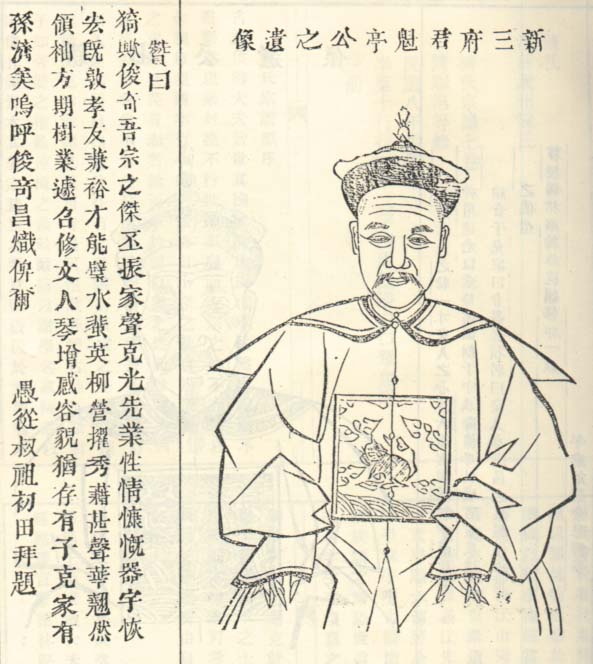 新三府君魁亭公之遺像
贊曰
猗歟俊奇吾宗之傑丕振家聲克光先業性情慷慨器宇恢
宏既敦孝友兼裕才能璧水蜚英柳營擢秀藉甚聲華翹然
領袖方期樹業遽召修文人琴增感容貌猶存有子克家有
孫濟美嗚呼俊奇昌熾俾爾 愚從叔祖初田拜題